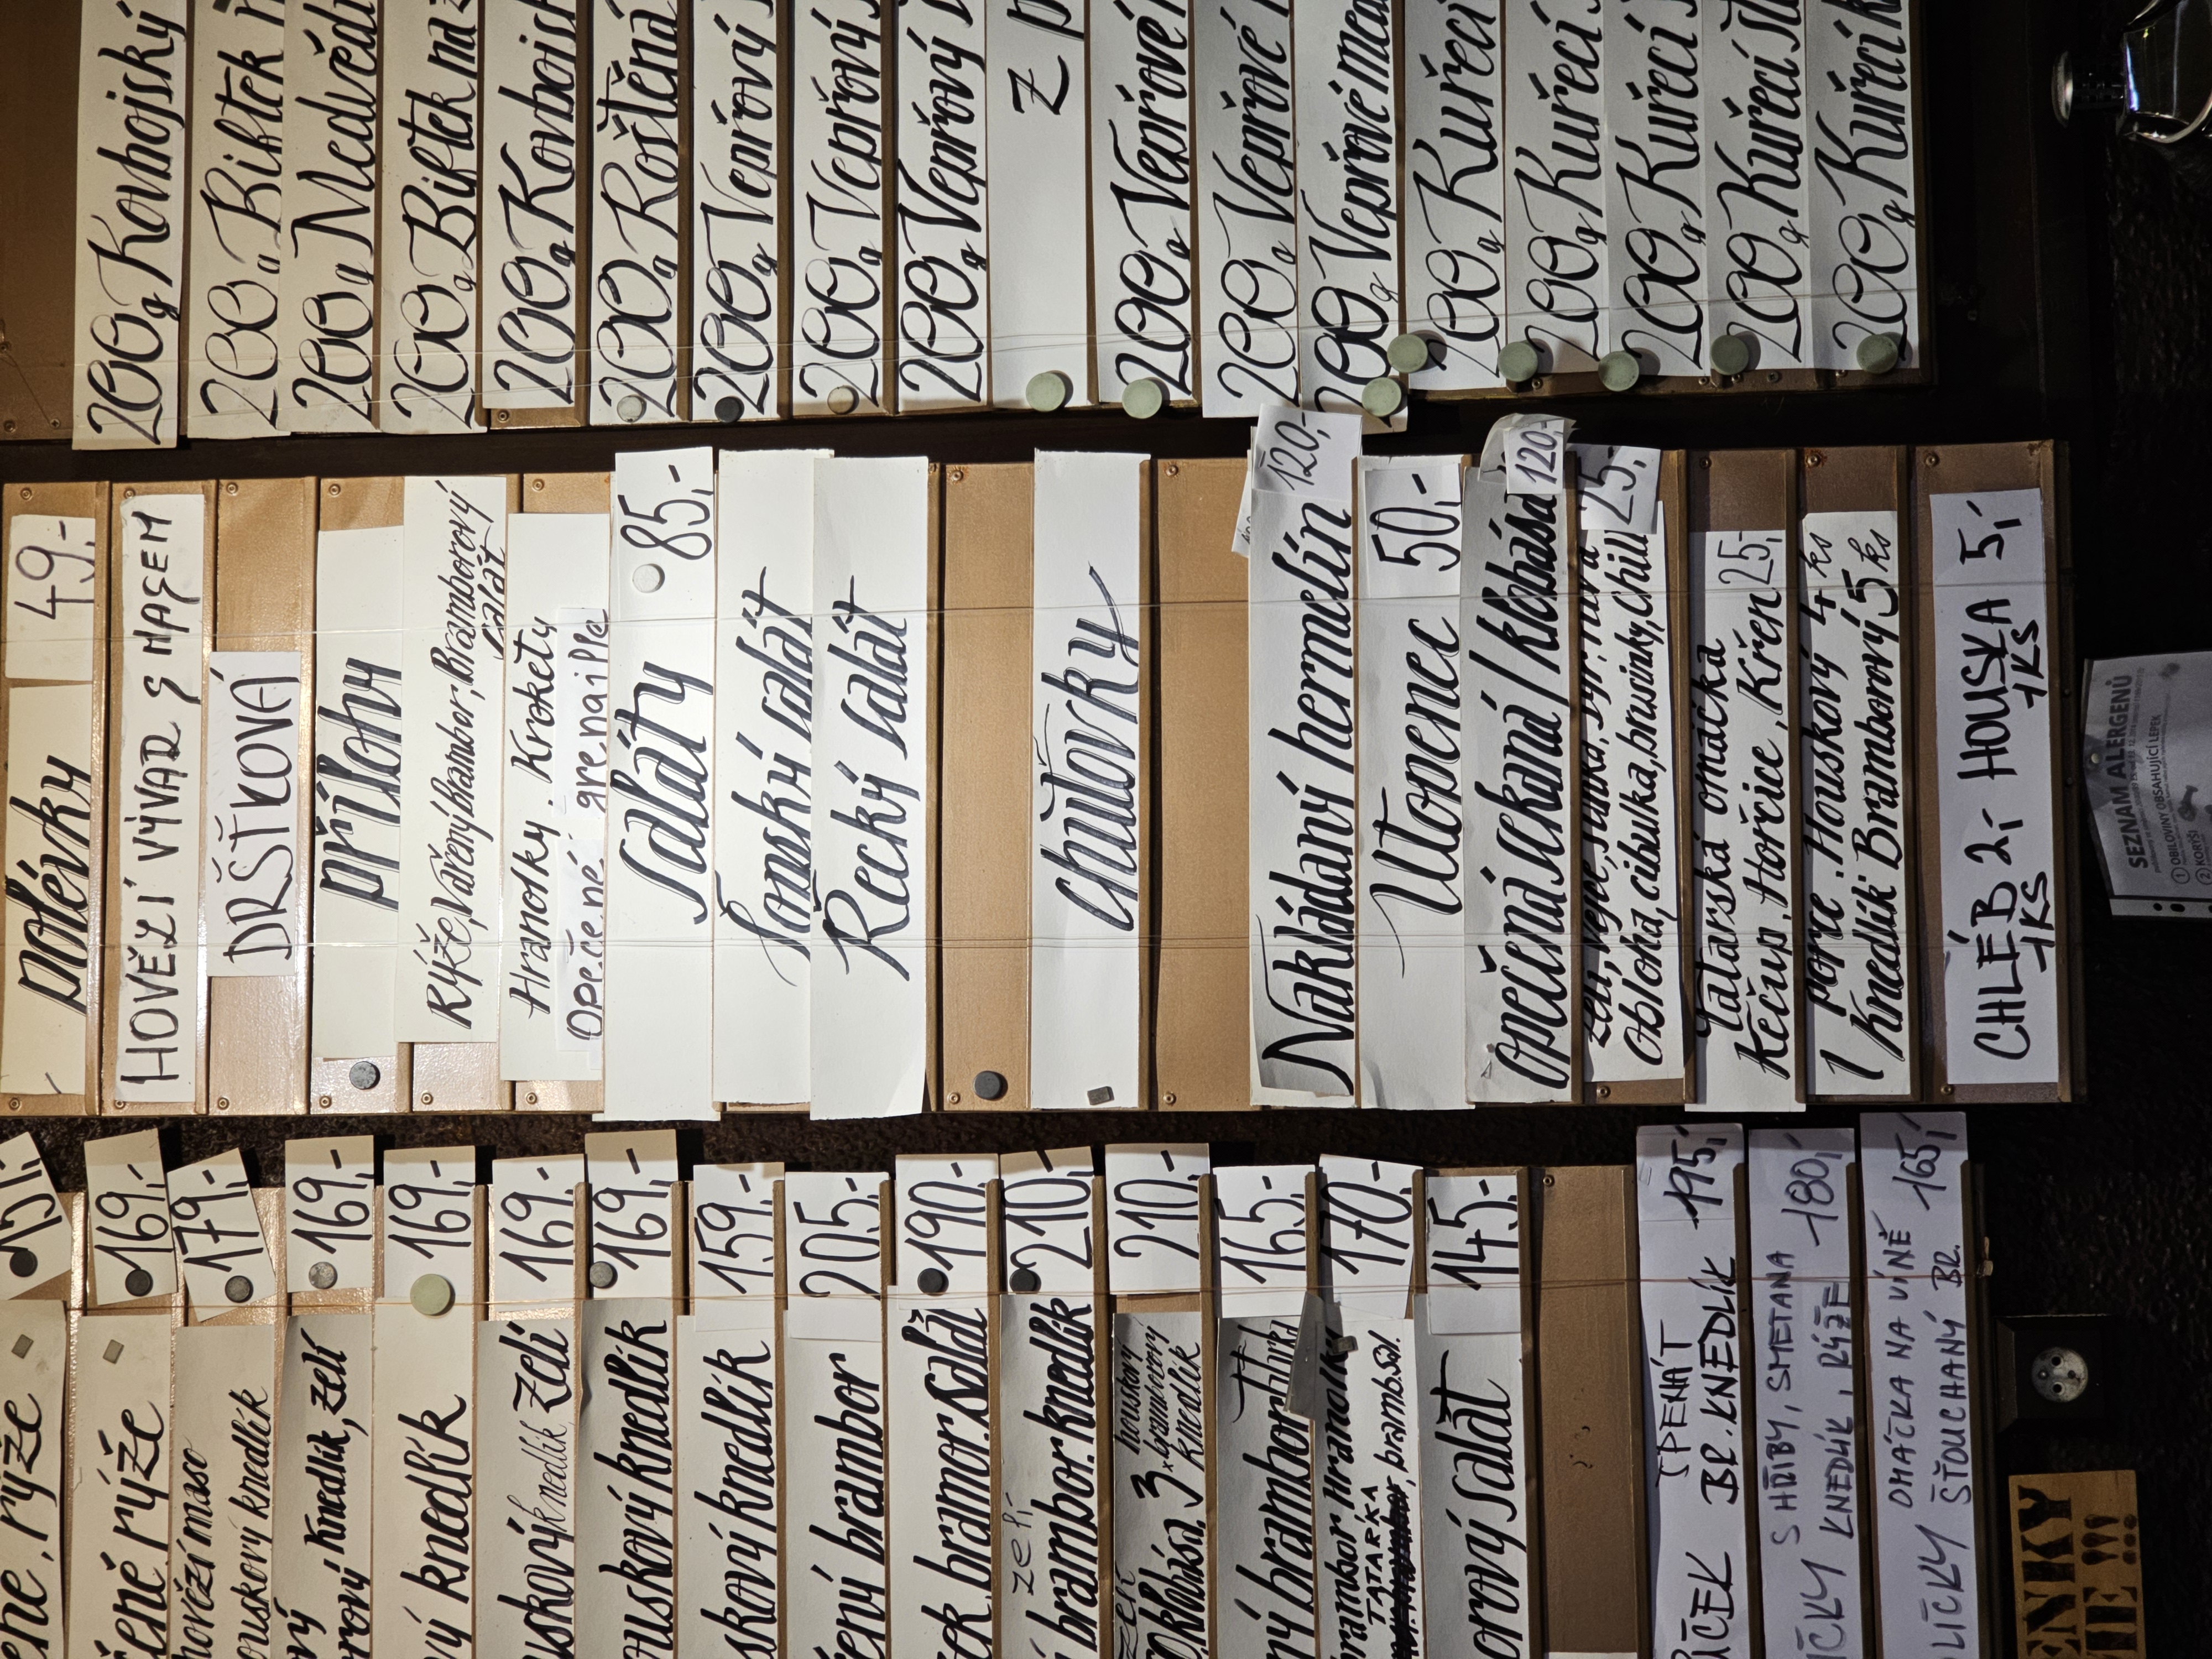 rýže
169,-
čené rýže
179,-
hovězí maso
ouskový knedlík
169,-
Knedlík, zelí
169,-
vý knedlík
169,-
uskový knedlík zelí
169,-
ouskový knedlík
159,-
skový knedlík
205,-
ený brambor
190,-
ek bramor.salát
210,-
zelí
brambor.knedlík
210,-
klobása, 3x houskový bramborový knedlík
165,-
ný brambor
170,-
brambor Hranolky
TATARKA
bramb.sal.
145,-
orový salát
ŠPENÁT
ÍČEK BR.KNEDLÍK 195,-
S HŘIBY, SMETANA
ÍČKY KNEDLÍK, RÝŽE 180,-
OMÁČKA NA VÍNĚ 165,-
LÍČKY ŠŤOUCHANÝ BR.
ENKY
ME !!!
polévky 49,-
HOVĚZÍ VÝVAR S MASEM
DRŠŤKOVÁ
přílohy
Rýže, Vařený brambor, Bramborový salát
Hranolky. Krokety
Opečené grenaille
saláty 85,-
Šopský salát
Řecký salát
chuťovky
Nakládaný hermelín 120,-
Utopenec 50,-
opečená sekaná / klobása 120,-
Zelí, vejce, 25,-
Obloha, cibulka, brusinky, Chilli
Tatarská omáčka
Kečup, Hořčice, Křen 25,-
1 porce: Houskový 4 ks
Knedlík Bramborový 5 ks
CHLÉB 2,- HOUSKA 5,-
1KS 1KS
SEZNAM ALERGENŮ
① OBILOVINY OBSAHUJÍCÍ LEPEK
② KORÝŠI
200g Kovbojský
200g Biftek
200g Medvědí
200g Biftek na
200g Kovbojsk
200g Roštěná
200g Vepřový
200g Vepřový
200g Vepřový
z p
200g Vepřové
200g Vepřové
200g Vepřové meda
200g Kuřecí
200g Kuřecí
200g Kuřecí
200g Kuřecí
200g Kuřecí